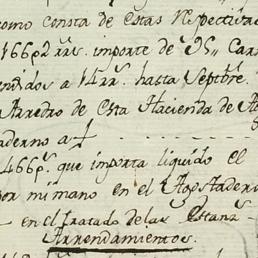 como consta de estas respectivas
166p2 rrs. importe de 95,, Carr
hasta Septbre.
Arredro de esta Hacienda de A
aderno a
466ps. que importa liquido el
por mi mano en el Apostadero
en el tratado de las Estanz
Arrendamientos.